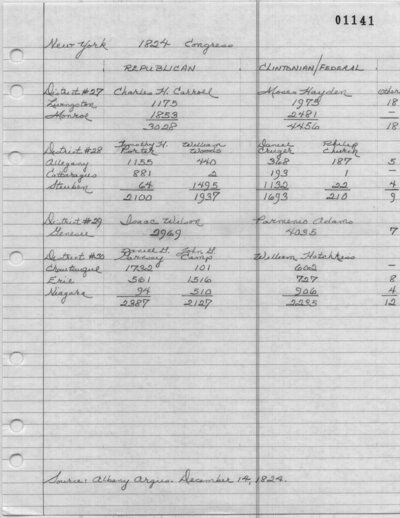 01141
New York 1824 Congress
REPUBLICAN CLINTONIAN/FEDERAL
District #27 Charles H. Carroll Moses Hayden others
Livingston 1175 1975 18
Monroe 1853 2481 -
3028 4456 18
District #28 Timothy H. Porter William Woods Daniel Cruger Philip Church
Allegany 1155 440 368 187 5
Cattaraugus 881 2 193 1 -
Steuben 64 1495 1132 22 4
2100 1937 1693 210 9
District #29 Isaac Wilson Parmenio Adams
Genesee 2969 4035 7
District #30 Daniel G. John G. Camp William Hotchkiss
Chautauque 1732 101 602 -
Erie 561 1516 727 8
Niagara 94 510 906 4
2387 2127 2235 12
Source: Albany Argus. December 14, 1824.